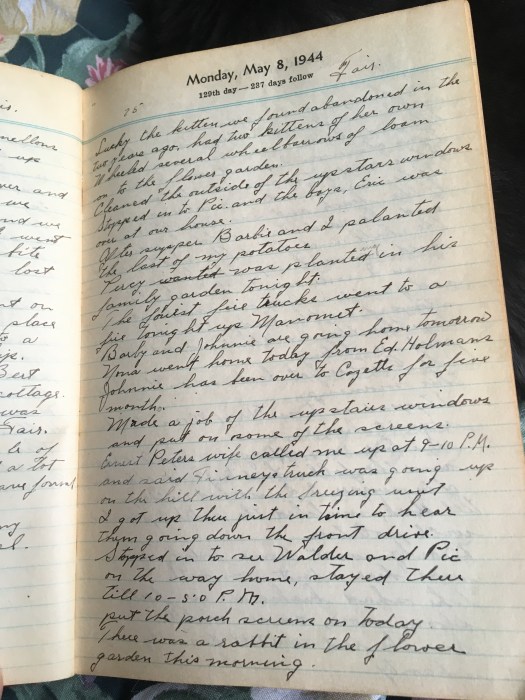 is.
mellons
up
ver and
we
nd we
I went
bite
lost
nt on
place
to a
Best
cottage.
was
Fair.
le of
a tot
ave found
my
Monday, May 8, 1944
129th day—237 days follow
Fair.
75
Lucky the kitten we found abandoned in the
two years ago, had two kittens of her own
Wheeled several wheelbarrows of loam
in to the flower garden.
Cleaned the outside of the upstars windows
Stopped in to Pic. and the boys, Eric was
over at our house.
After supper Barbie and I palanted
the last of my potatoe
Percy wanted was planted in his
family garden tonight.
The forest fire trucks went to a
fire tonight up Manomet.
Barby and Johnnie are going home tomorrow
Nona went home today from Ed. Holmans
Johnnie has been over to for five
month.
Made a job of the upstaies windows
and put on some of the screens.
Ernest Peters wife called me up at 9-10 P.M.
and said truck was going up
on the hill with the unit
I got up thee just in time to hear
them going down the front drive.
Stopped in to see Walder and Pic
on the way home, stayed there
till 10-50 P.M.
put the porch screens on today.
There was a rabbit in the flower
garden this morning.